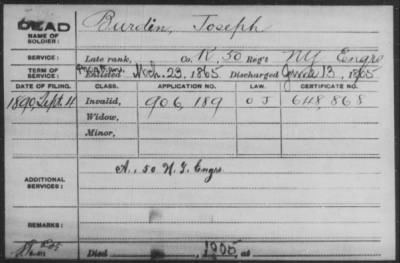 DEAD
NAME OF SOLDIER: Burdin, Joseph
SERVICE: Late rank, Co. K, 50 Reg't NY Engrs
TERM OF SERVICE: Enlisted Mch. 23, 1865 Discharged June 13, 1865
DATE OF FILING. CLASS. APPLICATION NO. LAW. CERTIFICATE NO.
1890, Sept. 4 Invalid, 906,189 O J 648,868
Widow,
Minor,
ADDITIONAL SERVICES: A, 50 N.Y. Engrs
REMARKS:
Died 1905, at